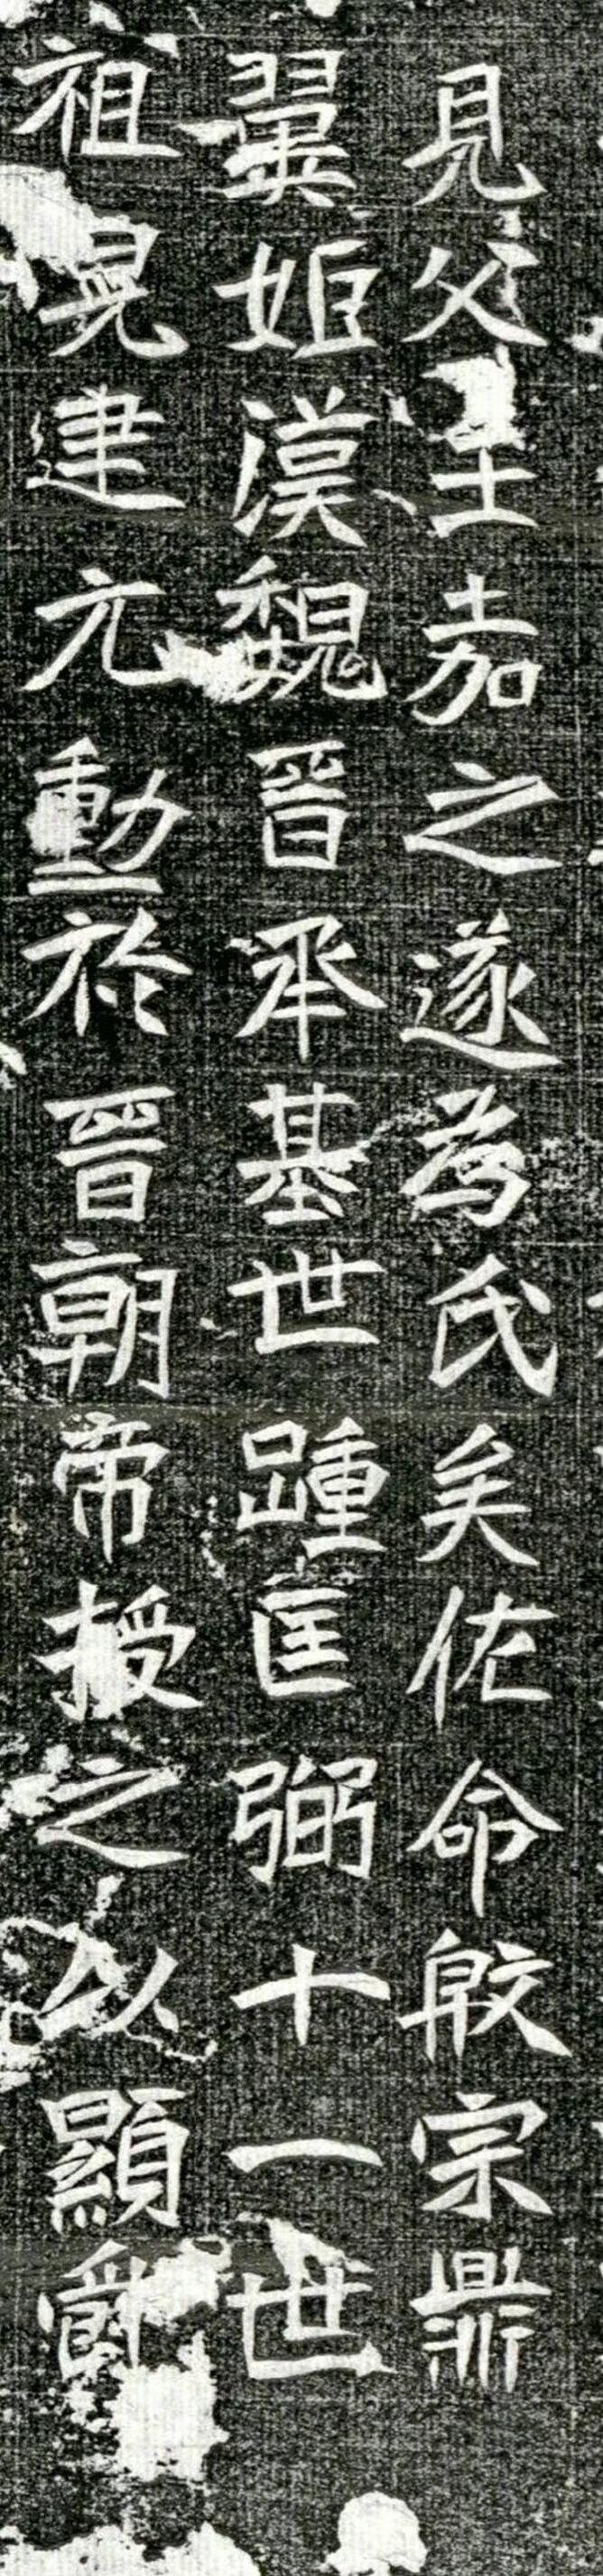 見父嘉之遂為氏矣佐命殷宗鼎
翼姬漢魏晉承基世踵匡弼十一世
祖晃建元勳於晉朝帝授之以顯爵